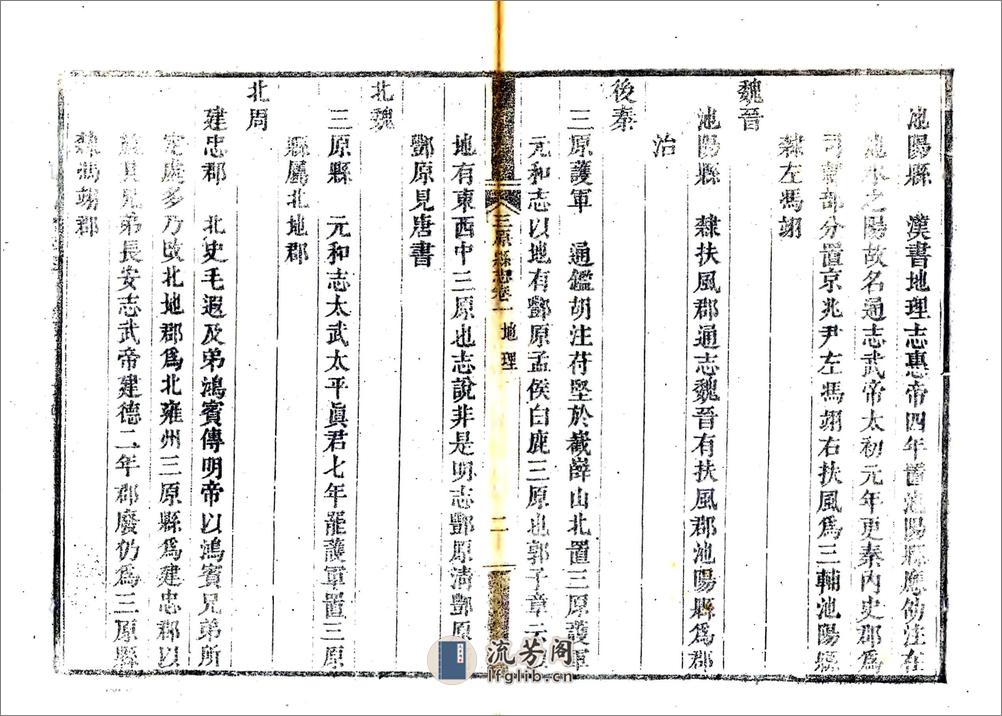 池陽縣　漢書地理志惠帝四年置池陽縣應劭注在
池水之陽故名通志武帝太初元年更秦內史郡爲
司隸部分置京兆尹左馮翊右扶風爲三輔池陽縣
隸左馮翊
魏晉
池陽縣　隸扶風郡通志魏晉有扶風郡池陽縣爲郡
治
後秦
三原護軍　通鑑胡注苻堅於嶻嶭山北置三原護軍
元和志以地有酆原孟侯白鹿三原也郭子章云以
三原縣志卷一　地理　二
地有東西中三原也志說非是明志酆原清酆原
酆原見唐書
北魏
三原縣　元和志太武太平眞君七年罷護軍置三原
縣屬北地郡
北周
建忠郡　北史毛遐及弟鴻賓傳明帝以鴻賓兄弟所
定處多乃改北地郡爲北雍州三原縣爲建忠郡以
兄弟長安志武帝建德二年郡廢仍爲三原縣
隸馮翊郡
流芳阁
lfglib.cn